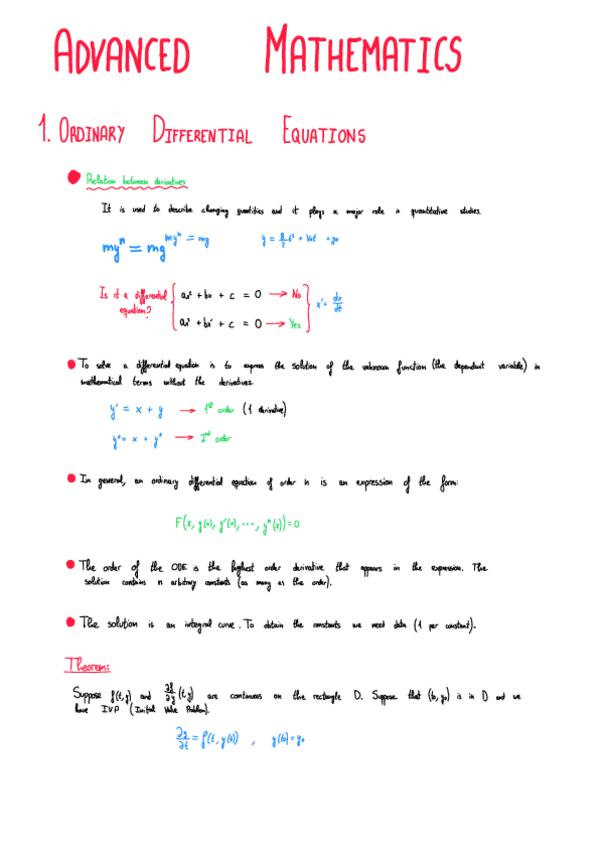 ADVANCED MATHEMATICS
1. ORDINARY DIFFERENTIAL EQUATIONS
Relation between derivatives
It is used to describe changing quantities and it plays a major role in quantitative studies.
my'' = mg my'' = mg y = g/2 t² + V₀t + y₀
Is it a differential equation? { ax² + bx + c = 0 → No
ax² + bx' + c = 0 → Yes } x' = dx/dt
To solve a differential equation is to express the solution of the unknown function (the dependent variable) in
mathematical terms without the derivatives.
y' = x + y → 1st order (1 derivative)
y'' = x + y² → order
In general, an ordinary differential equation of order n is an expression of the form:
F(x, y(x), y'(x), ..., yⁿ(x)) = 0
The order of the ODE is the highest order derivative that appears in the expression. The
solution contains n arbitrary constants (as many as the order).
The solution is an integral curve. To obtain the constants we need data (1 per constant).
Theorem:
Suppose f(t,y) and ∂f/∂y (t,y) are continuous on the rectangle D. Suppose that (t₀, y₀) is in D and we
have IVP (Initial Value Problem).
∂y/∂t = f(t, y(t)) , y(t₀) = y₀